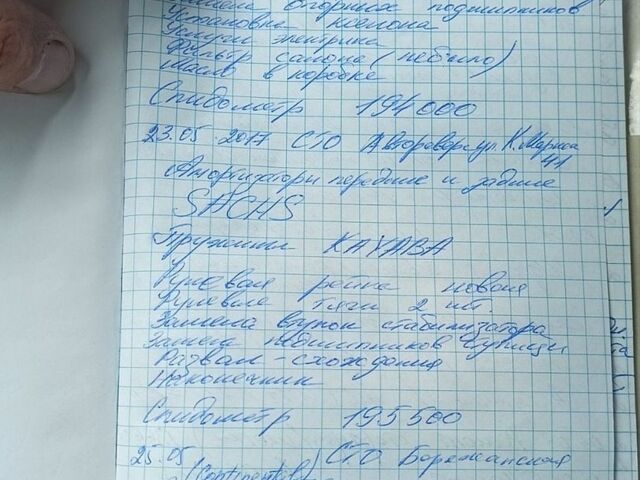 опорных подшипников
Установка ксенона
Услуги электрика
Фильтр салона (небыло)
Масло в коробке
Спидометр 194000
23.05 2017 СТО Автореверс ул. К. Маркса
41
Амортизаторы передние и задние
SACHS
Пружины KAYABA
Рулевая рейка новая
Рулевые тяги 2 шт.
Замена втулок стабилизатора
Замена подшипников ступицы
Развал-схождения
Наконечник
Спидометр 195500
25.05 СТО
(Continental)